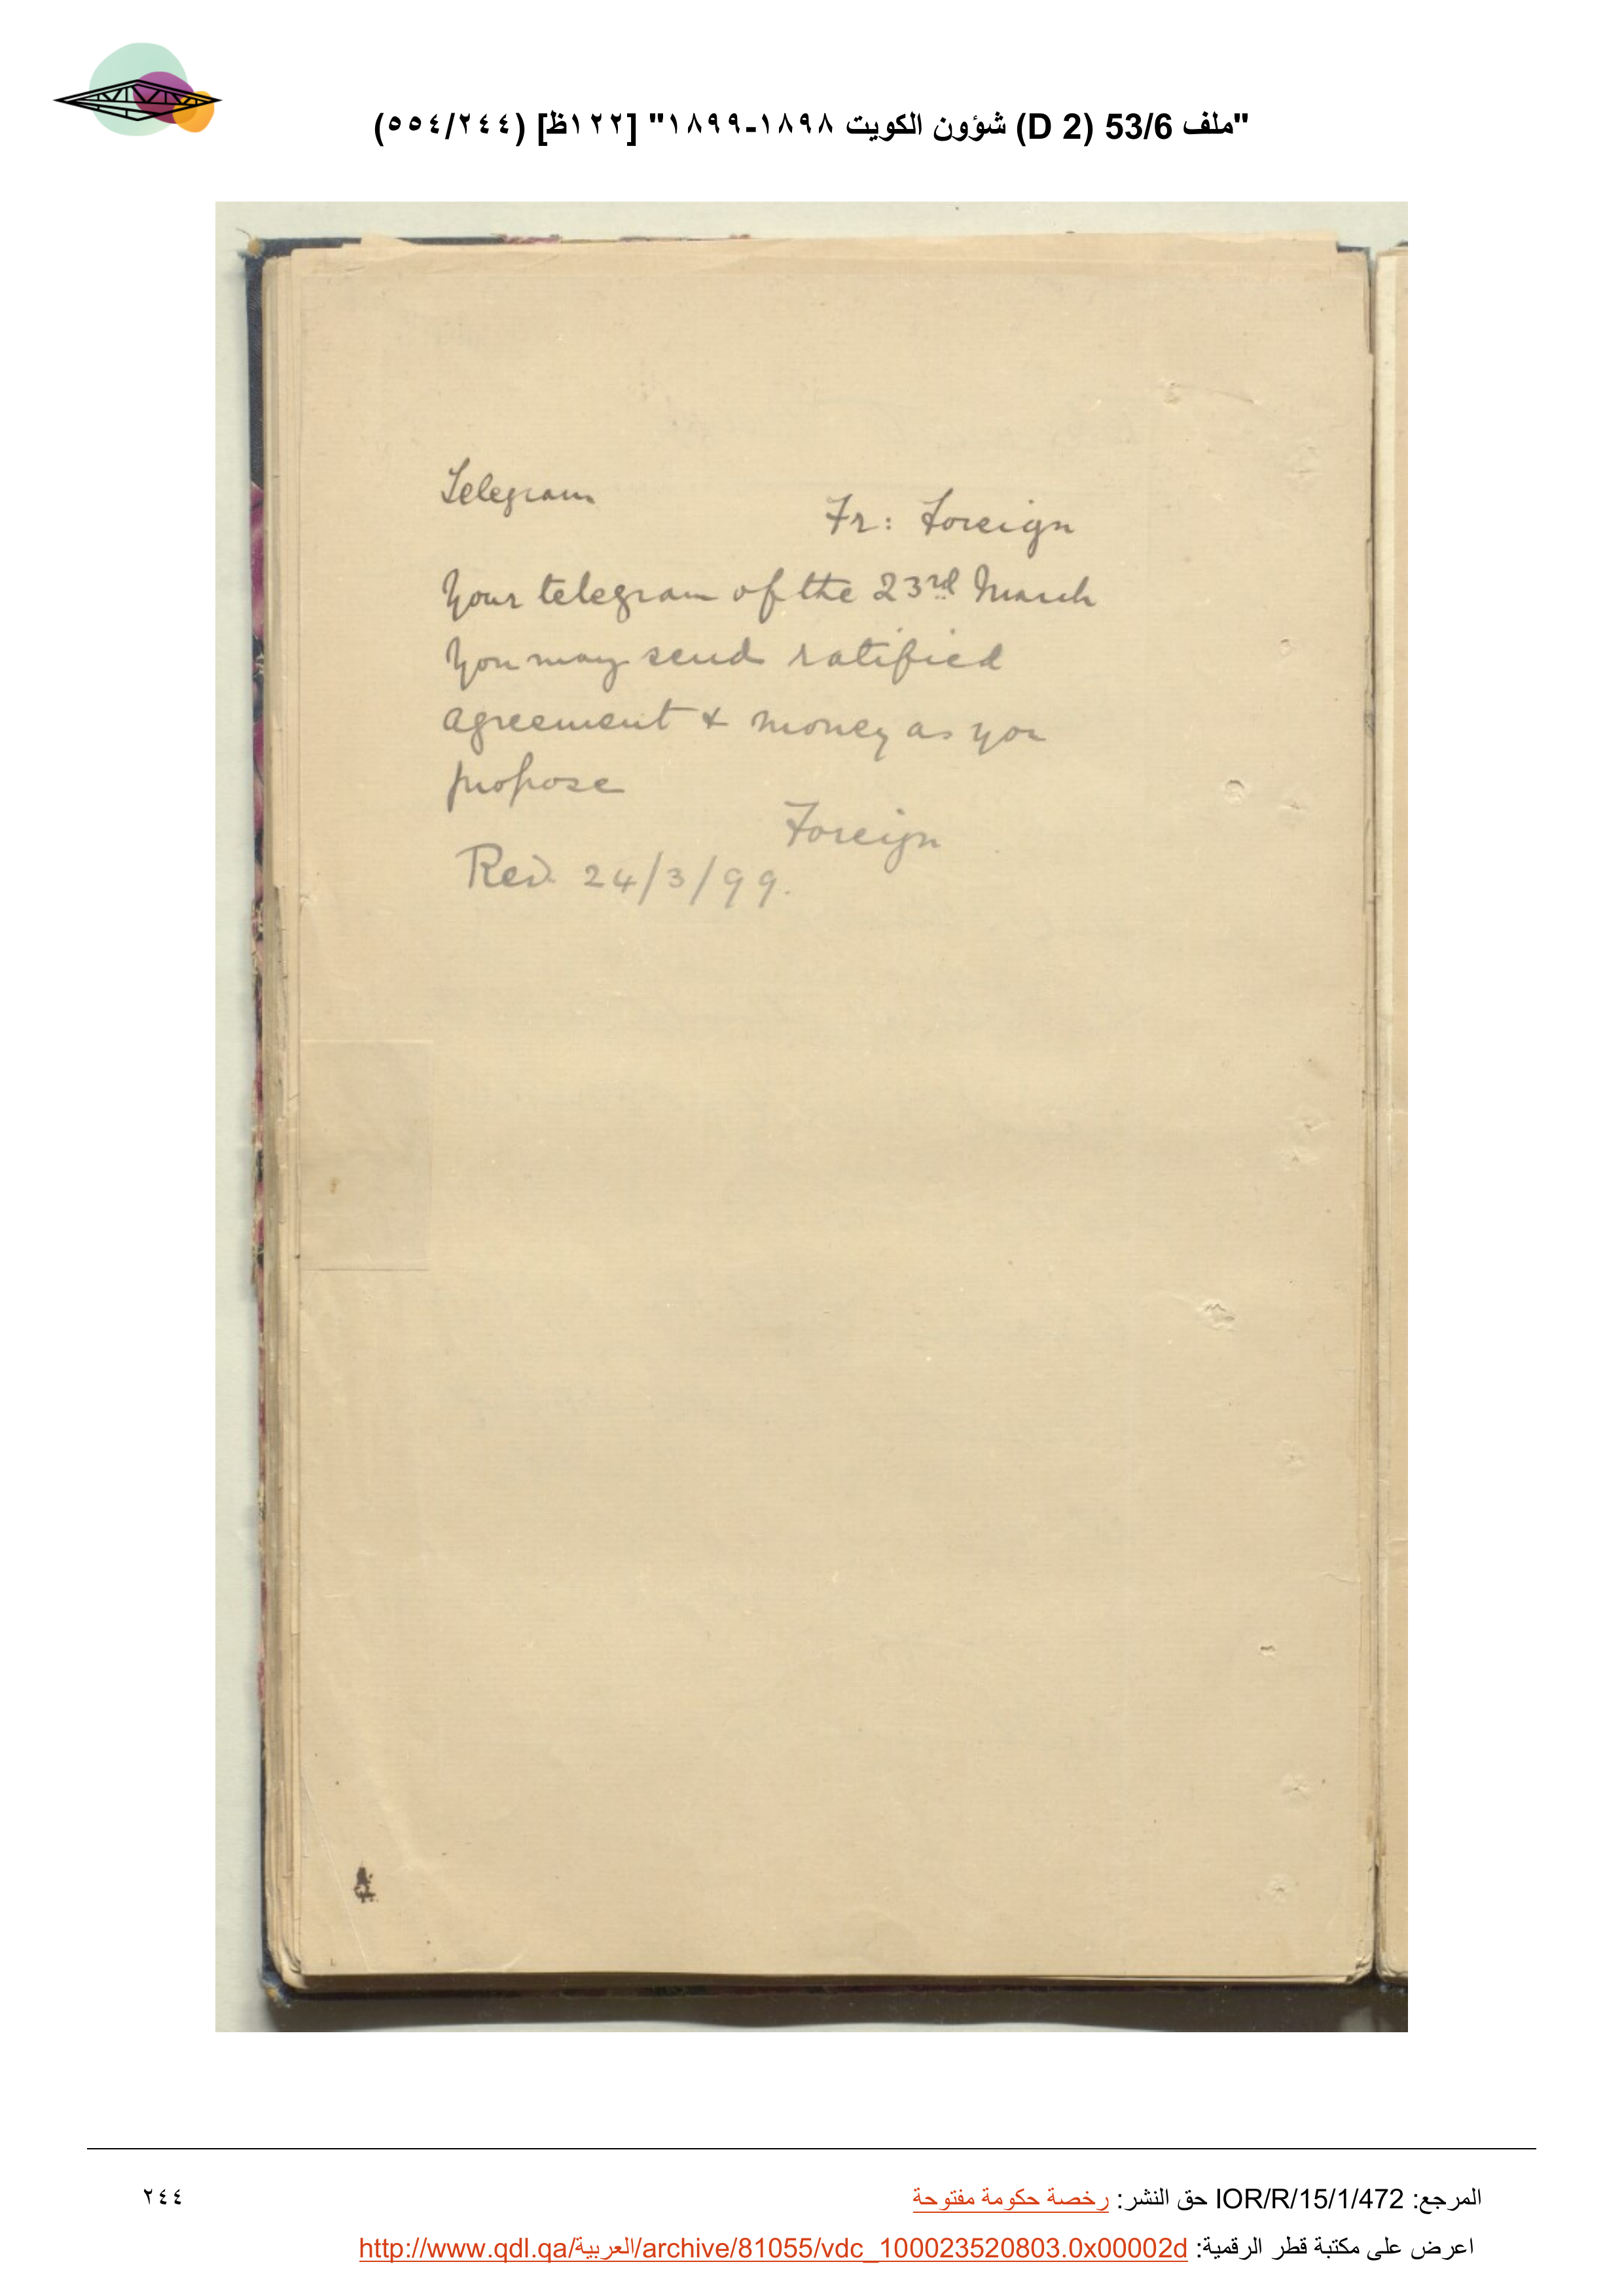 "ملف 53/6 (D 2) شؤون الكويت ١٨٩٨-١٨٩٩" [١٢٢ظ] (٢٤٤/٥٥٤)
Telegram
Fr: Foreign
Your telegram of the 23rd March
You may send ratified
agreement & money as you
propose
Foreign
Recd. 24/3/99.
المرجع: IOR/R/15/1/472 حق النشر: رخصة حكومة مفتوحة
٢٤٤
اعرض على مكتبة قطر الرقمية: http://www.qdl.qa/العربية/archive/81055/vdc_100023520803.0x00002d